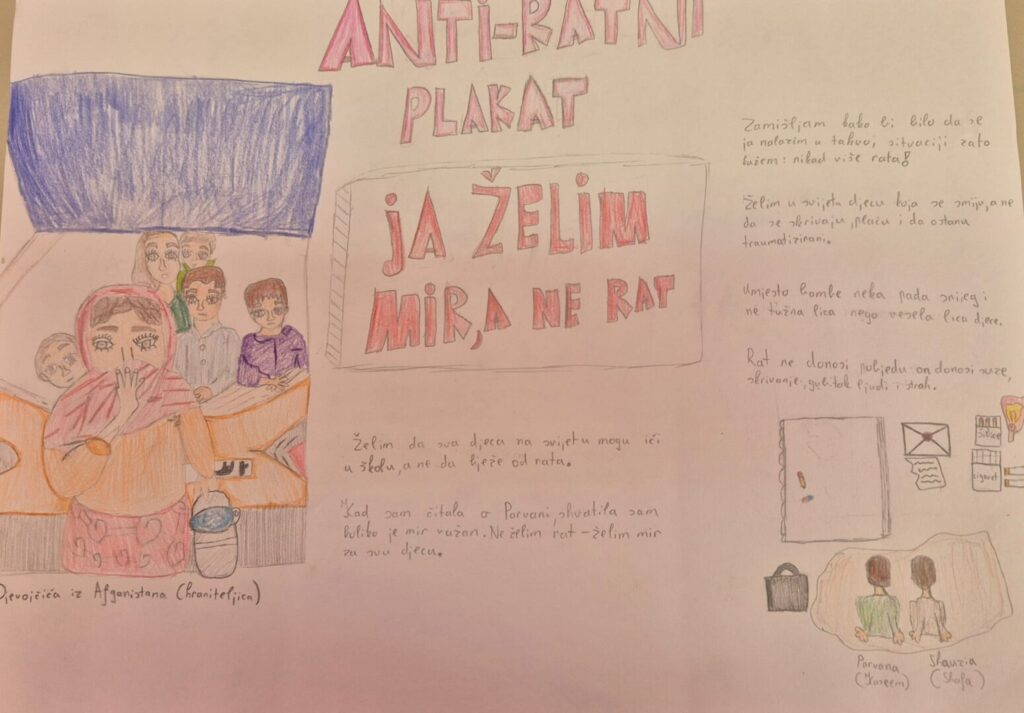 ANTI-RATNI
PLAKAT
JA ŽELIM
MIR, A NE RAT
Želim da sva djeca na svijetu mogu ići
u školu, a ne da bježe od rata.
Kad sam čitala o Parvani, shvatila sam
koliko je mir važan. Ne želim rat - želim mir
za svu djecu.
Djevojčica iz Afganistana (hraniteljica)
Zamišljam kako bi bilo da se
ja nalazim u takvoj situaciji zato
kažem: nikad više rata!
Želim u svijetu djecu koja se smiju, a ne
da se skrivaju, plaču i da ostanu
traumatizirani.
Umjesto bombe neka pada snijeg i
ne tužna lica nego vesela lica djece.
Rat ne donosi pobjedu on donosi suze,
skrivanje, gubitak ljudi i strah.
Šibice
cigaret
Parvana
(Kaseem)
Shauzia
(Shafa)